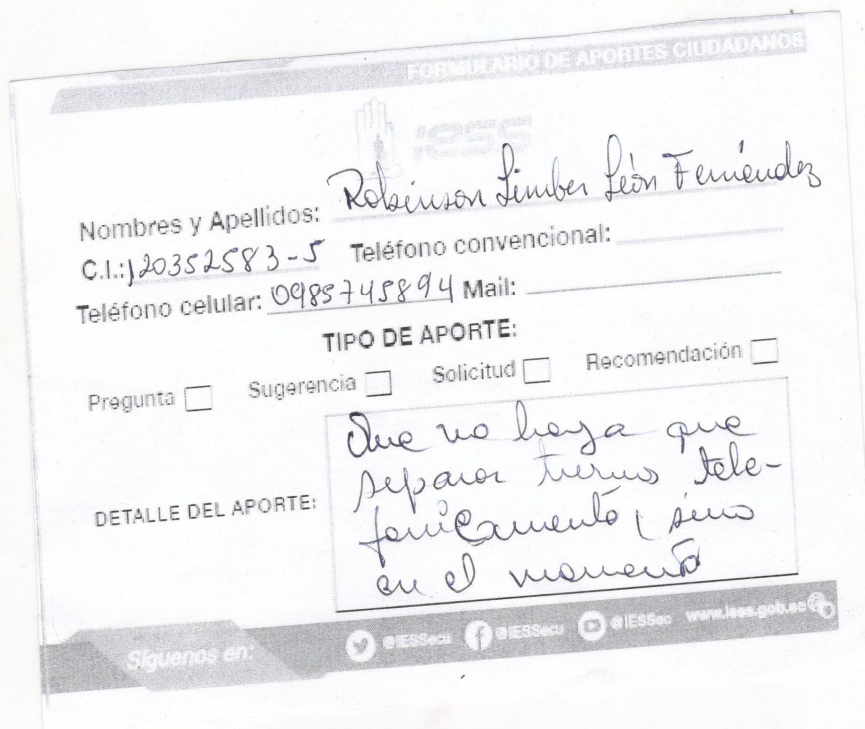 FORMULARIO DE APORTES CIUDADANOS
IESS
Nombres y Apellidos: Robinson Limber León Fernández
C.I.: 120352583-5 Teléfono convencional:
Teléfono celular: 0985745894 Mail:
TIPO DE APORTE:
Pregunta Sugerencia Solicitud Recomendación
Que no haya que
separar turnos tele-
DETALLE DEL APORTE:
fonicamente, sino
en el momento
Síguenos en: @IESSecu @IESSecu @IESSec www.iess.gob.ec